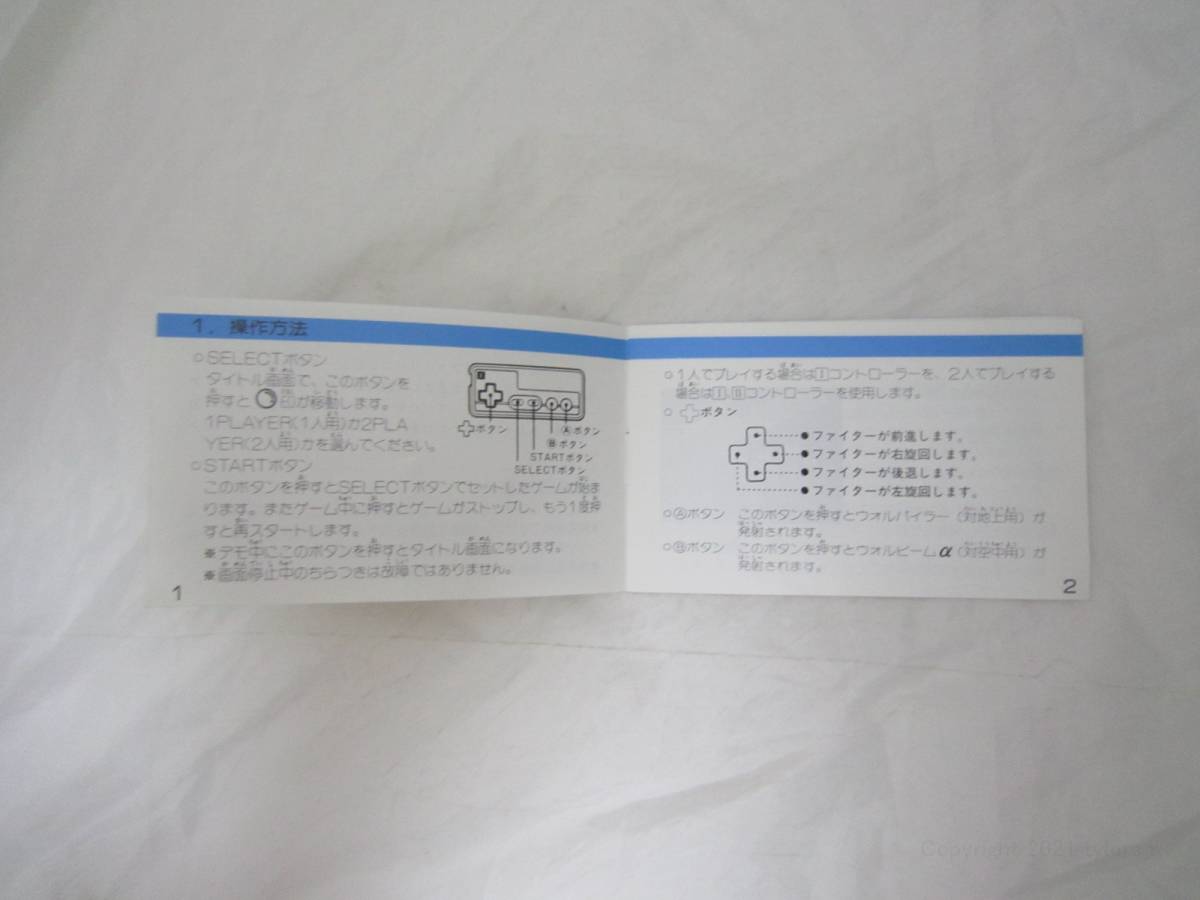 1. 操作方法
○SELECTボタン
タイトル画面で、このボタンを
押すと 印が移動します。
1PLAYER(1人用)か2PLA
YER(2人用)かを選んでください。
✚ボタン
Ⓐボタン
Ⓑボタン
STARTボタン
SELECTボタン
○STARTボタン
このボタンを押すとSELECTボタンでセットしたゲームが始ま
ります。またゲーム中に押すとゲームがストップし、もう1度押
すと再スタートします。
※デモ中にこのボタンを押すとタイトル画面になります。
※画面停止中のちらつきは故障ではありません。
1
○1人でプレイする場合はⅠコントローラーを、2人でプレイする
場合はⅠ、Ⅱコントローラーを使用します。
○✚ボタン
●ファイターが前進します。
●ファイターが右旋回します。
●ファイターが後退します。
●ファイターが左旋回します。
○Ⓐボタン このボタンを押すとウォルバイラー(対地上用)が
発射されます。
○Ⓑボタン このボタンを押すとウォルビームα(対空中用)が
発射されます。
2